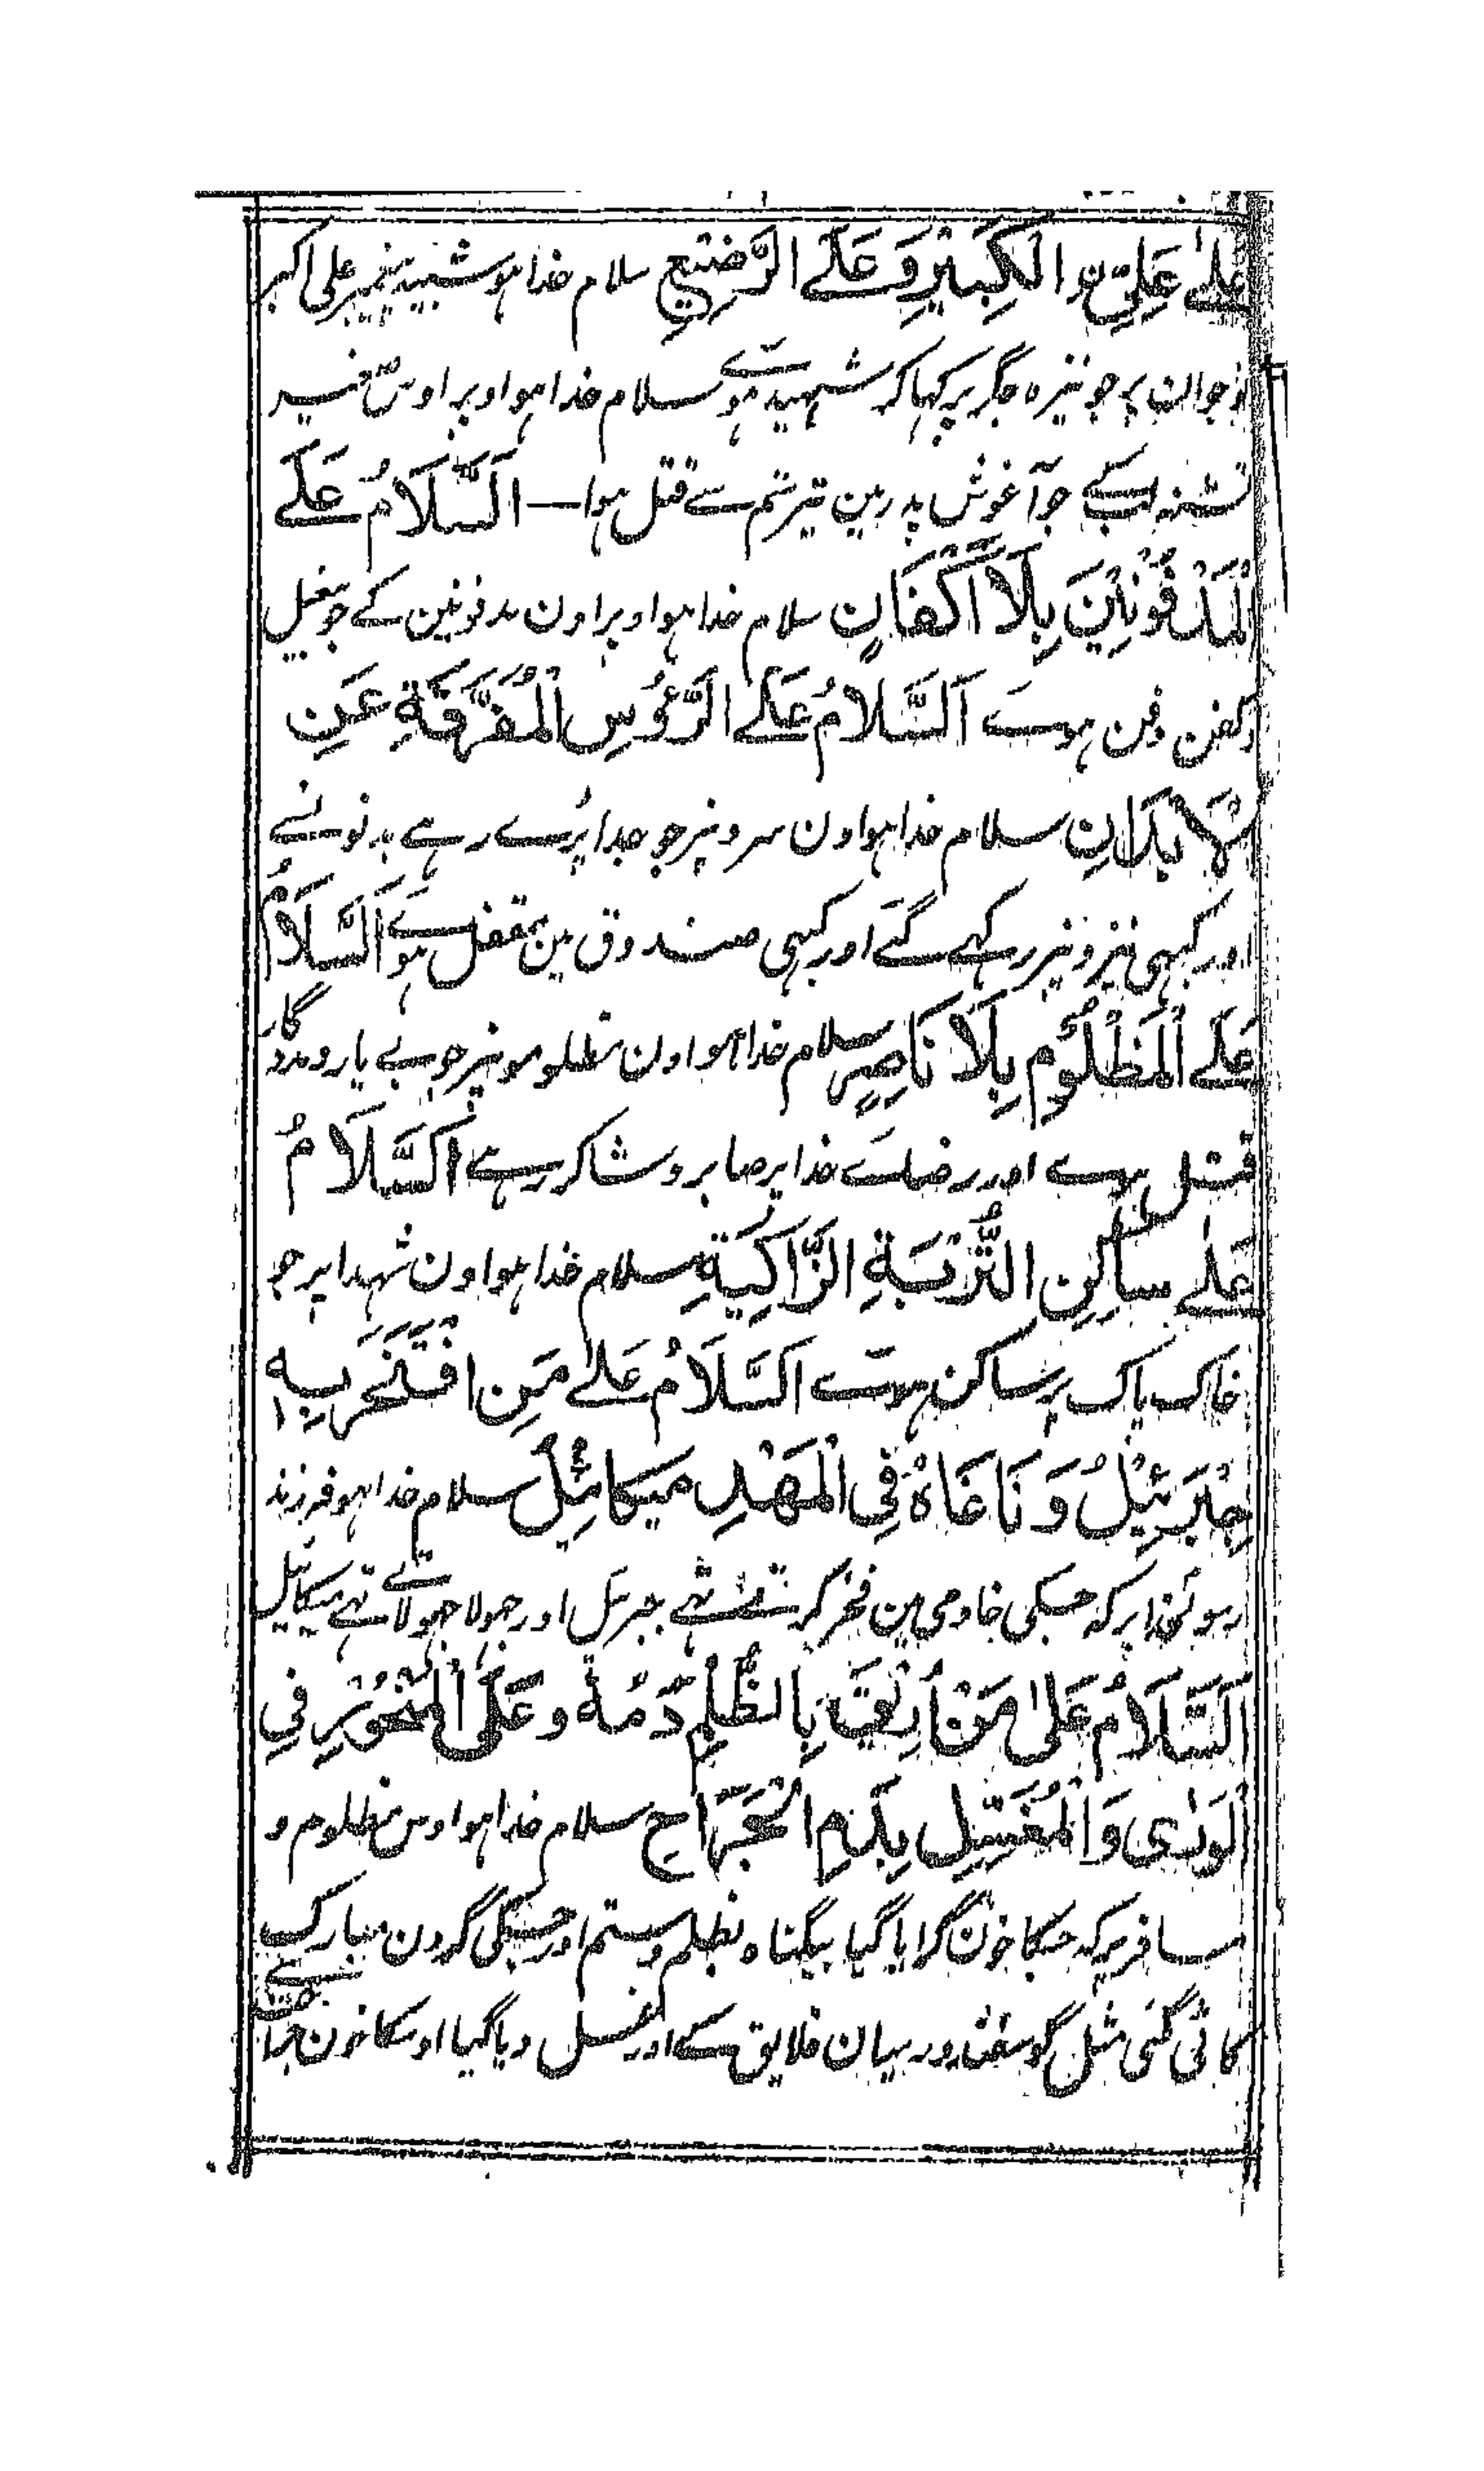 عَلىٰ عَلِيِّ نِ الْكَبِيْرِ وَعَلَے الرَّضِيْعِ سلام خدا ہو شبیہ پیغمبر علی اکبر
نوجوان پر جو نیزہ جگر پر کہا کر شہید ہوئے سلام خدا ہو اوپر اوس صغیر
تشنہ لب کے جو آغوش پدر مین تیر ستم سے قتل ہوا — اَلسَّلَامُ عَلَے
الْمَدْفُوْنِيْنَ بِلَا اَكْفَانٍ سلام خدا ہو اوپر اون مدفونین کے جو بیغسل
و کفن دفن ہوے اَلسَّلَامُ عَلَے الرَّءُوْسِ الْمُفَرَّقَةِ عَنِ
الْاَبْدَانِ سلام خدا ہو اون سرونپر جو جدا پڑے رہے بدنونسے
اور کبہی نیزونپر رکہے گئے اور کبہی صندوق مین مقفل ہوئے اَلسَّلَامُ
عَلَے الْمَظْلُوْمِ بِلَا نَاصِرٍ سلام خدا ہو اون مظلومونپر جو بے یار و مددگار
قتل ہوے اور رضاے خدا پر صابر و شاکر رہے اَلسَّلَامُ
عَلٰے سَاكِنِ التُّرْبَةِ الزَّاكِيَةِ سلام خدا ہو اون شہدا پر جو
خاک پاک پر ساکن ہوے اَلسَّلَامُ عَلىٰ مَنِ افْتَخَرَ بِهٖ
جِبْرَئِيْلُ وَ نَاغَاهُ فِي الْمَهْدِ مِيْكَائِيْلُ سلام خدا ہو فرزند
رسولخدا پر کہ جسکی خادمی مین فخر کرتے تہے جبرئیل اور جہولا جہولاتے تہے میکائیل
اَلسَّلَامُ عَلىٰ مَنْ اُرِيْقَ بِالظُّلْمِ دَمُهٗ وَ عَلَى الْمَنْحُوْرِ فِي
الْوَرٰى وَ الْمُغَسَّلِ بِدَمِ الْجِرَاحِ سلام خدا ہو اوس مظلوم و
مسافر پر کہ جسکا خون گرایا گیا بیگناہ بظلم و ستم اور جسکی گردن مبارک
کاٹی گئی مثل گوسفند درمیان خلایق کے اور غسل دیا گیا اوسکا خون جراحت سے